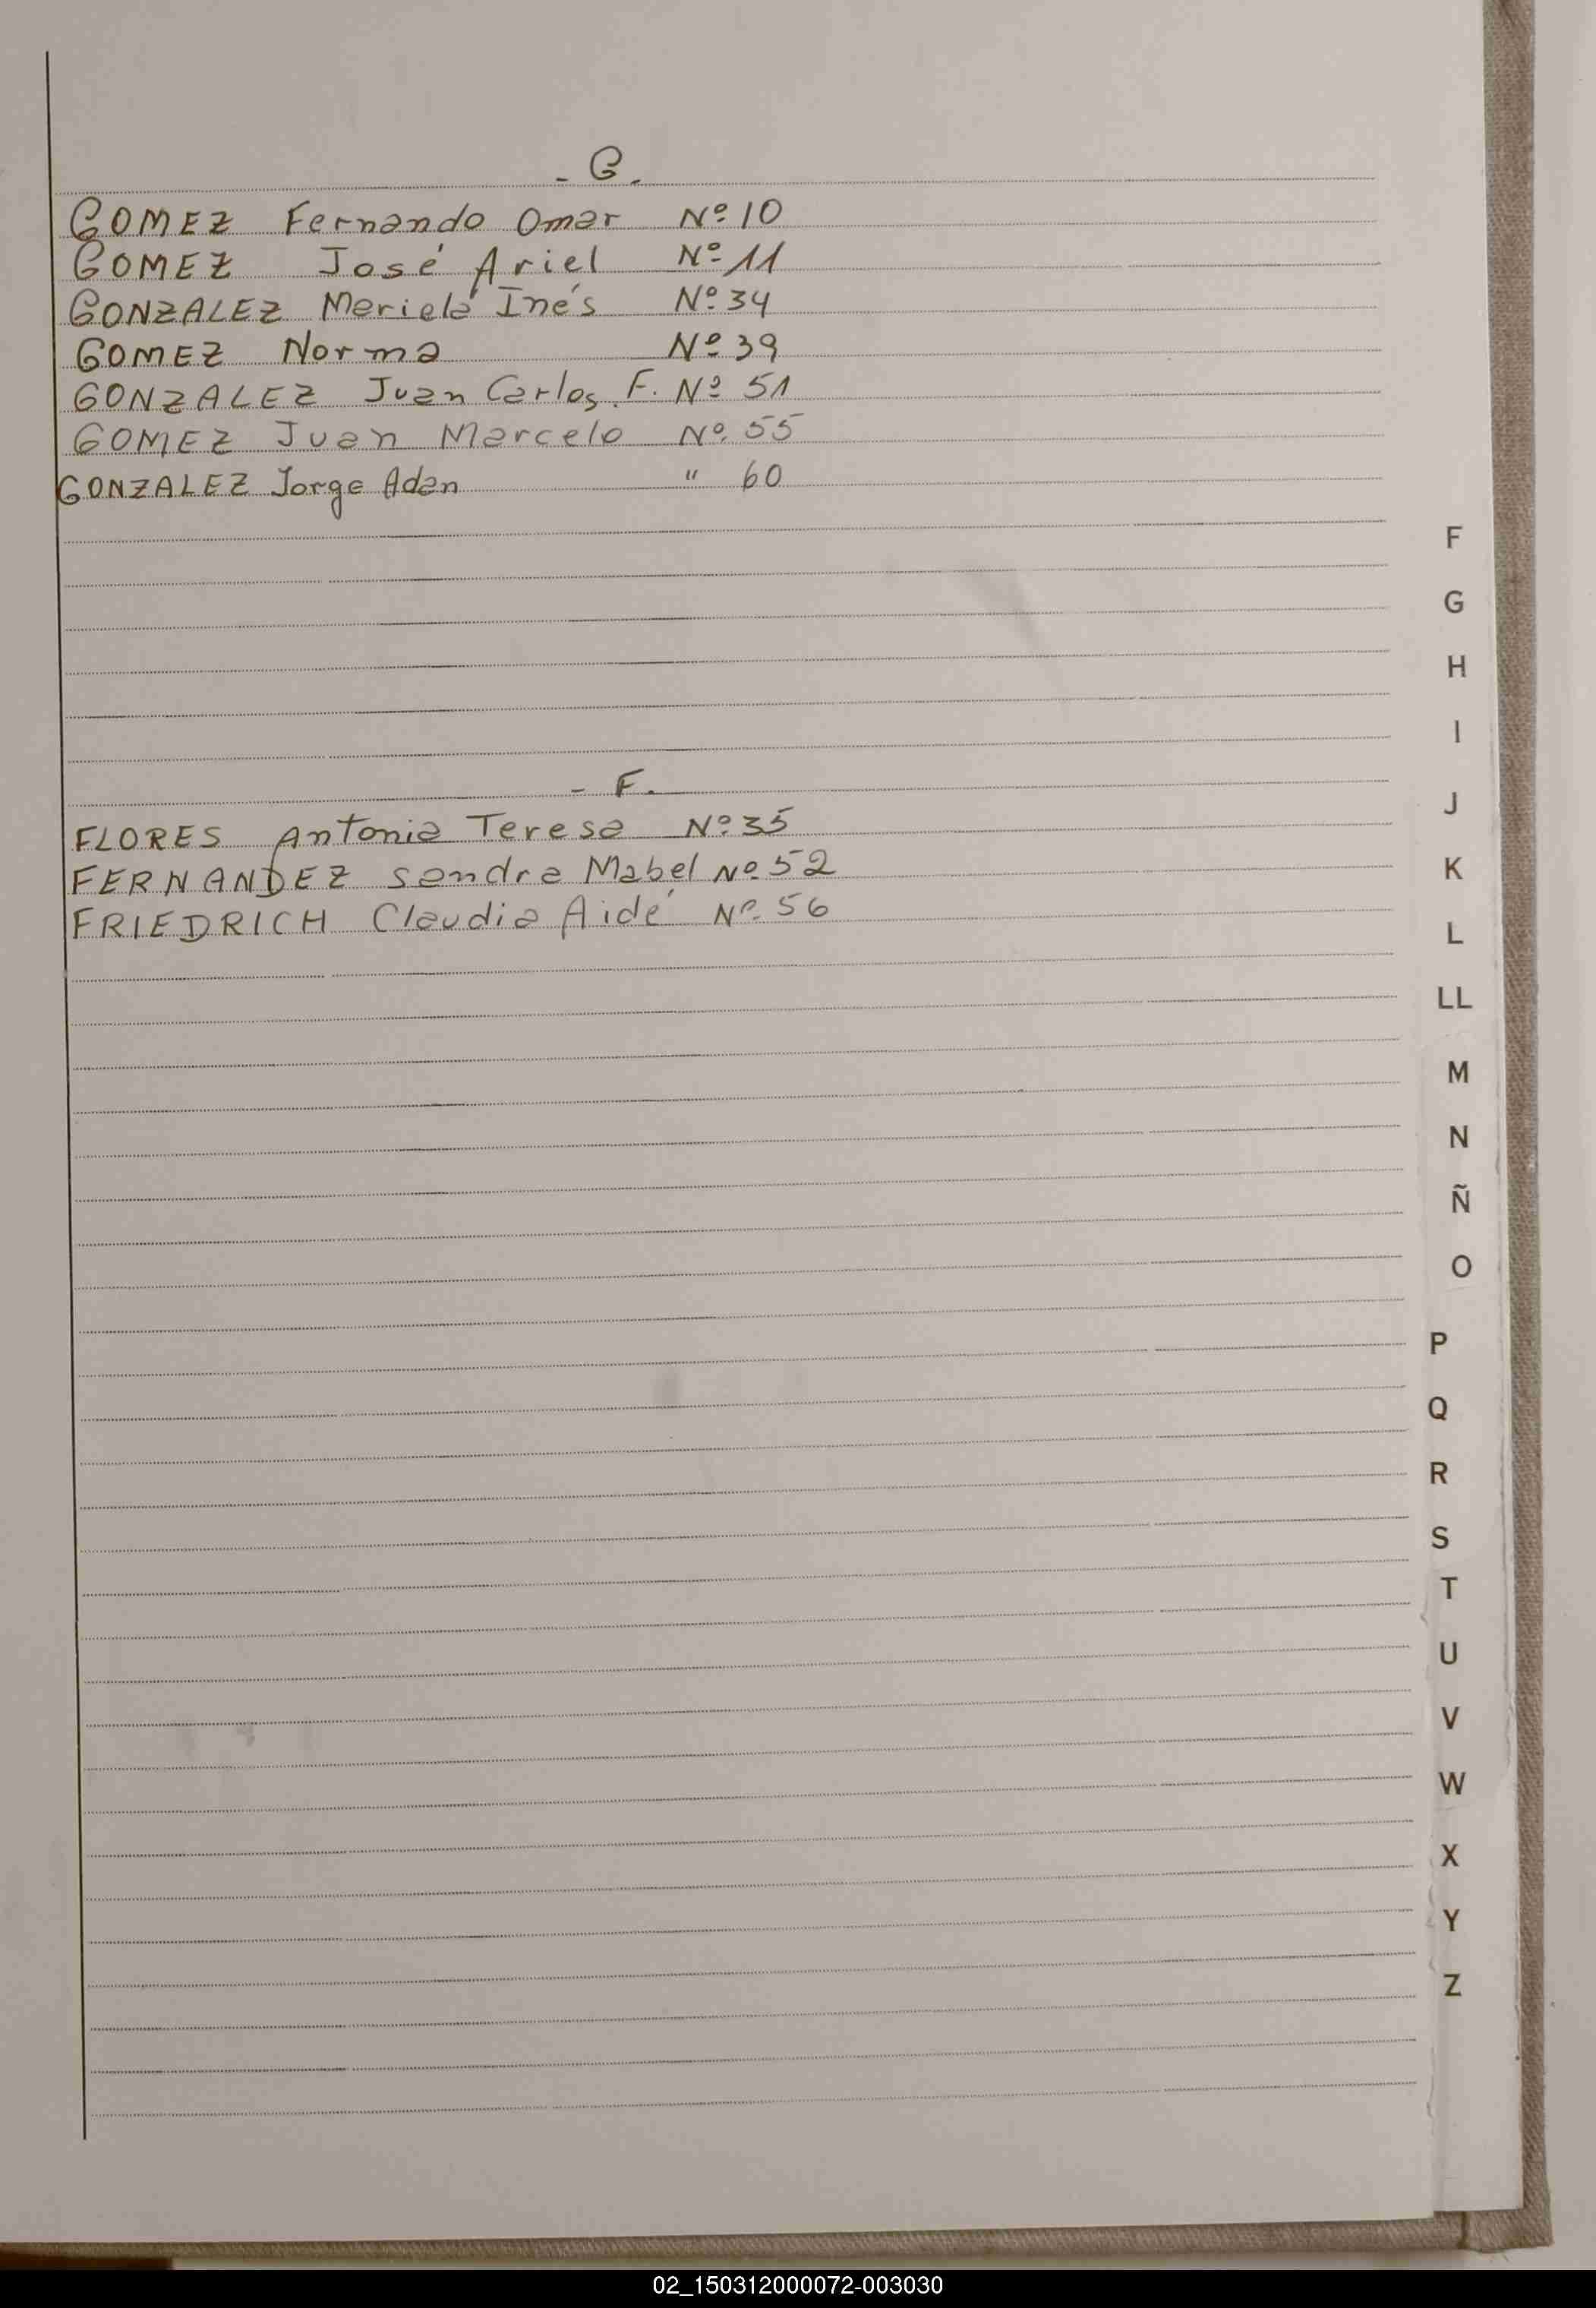 - G.
GOMEZ Fernando Omar Nº 10
GOMEZ José Ariel Nº 11
GONZALEZ Mariela Inés Nº 34
GOMEZ Norma Nº 39
GONZALEZ Juan Carlos F. Nº 51
GOMEZ Juan Marcelo Nº 55
GONZALEZ Jorge Adan " 60
- F.
FLORES Antonia Teresa Nº 35
FERNANDEZ Sandra Mabel Nº 52
FRIEDRICH Claudia Aidé Nº 56
F
G
H
I
J
K
L
LL
M
N
Ñ
O
P
Q
R
S
T
U
V
W
X
Y
Z
02_150312000072-003030